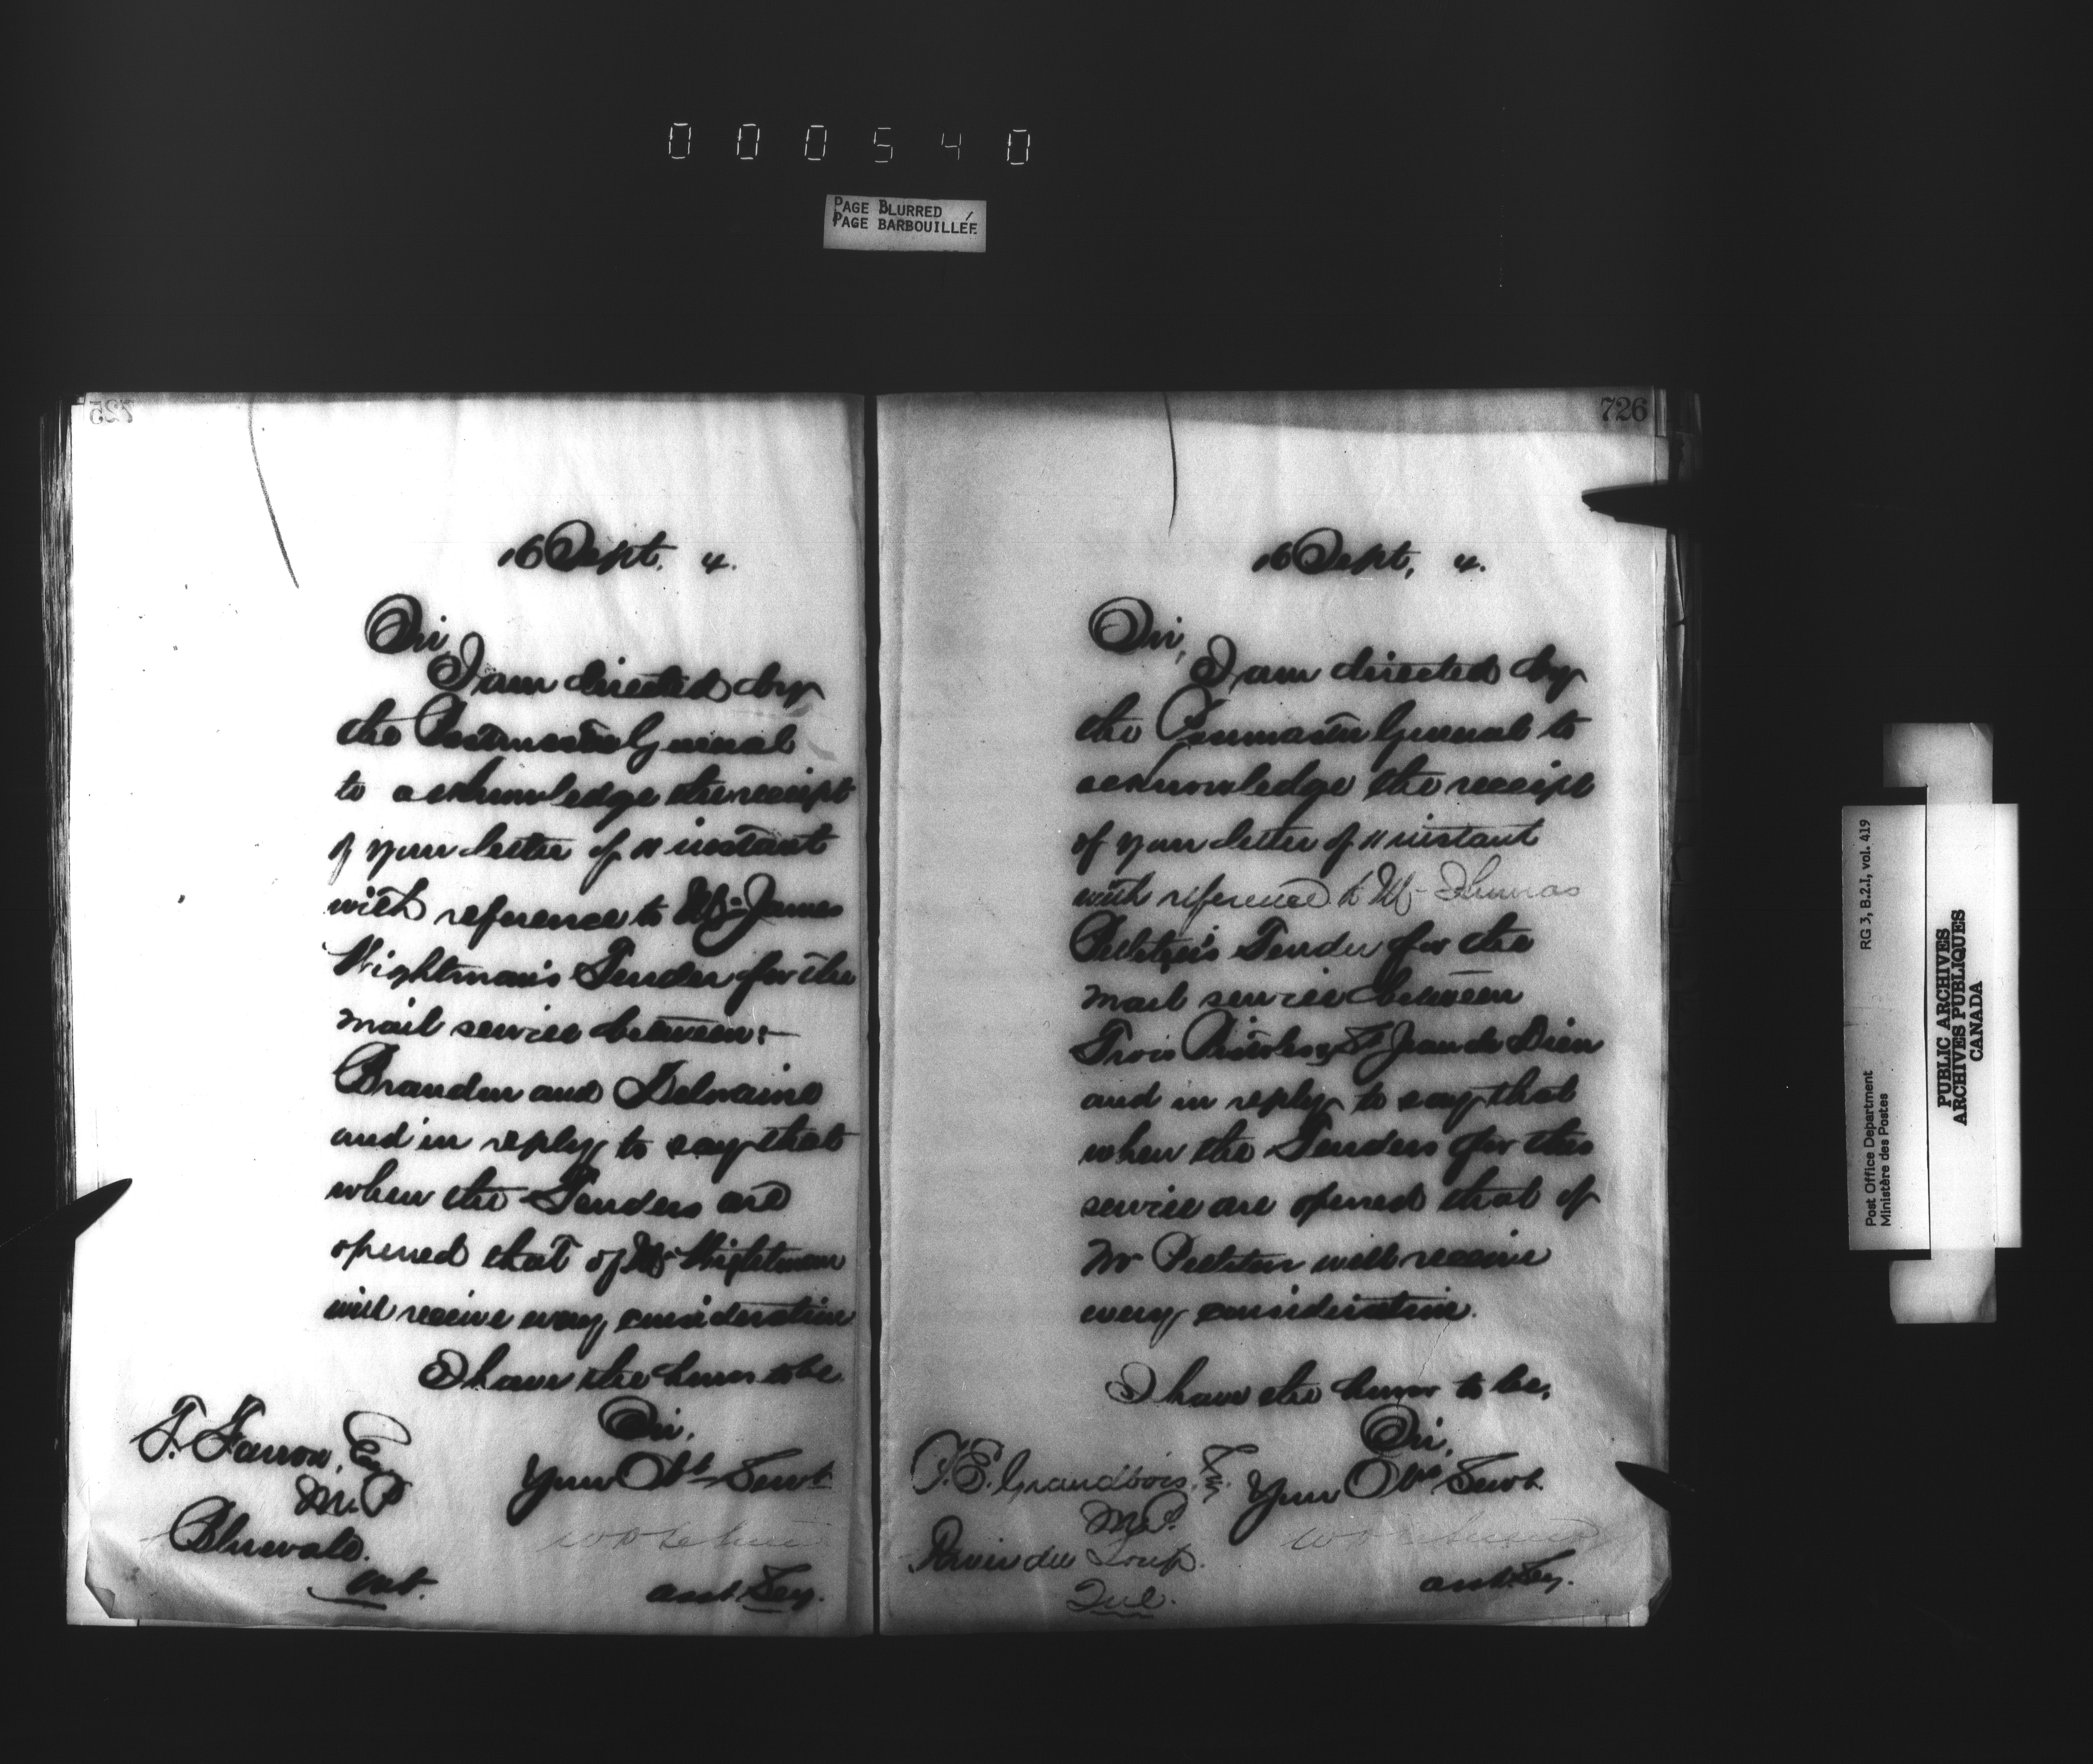 000540
PAGE BLURRED
PAGE BARBOUILLÉE
725
16 Sept. 4.
Sir,
I am directed by
the Postmaster General
to acknowledge the receipt
of your letter of 11 instant
with reference to Mr James
Wightman's Tender for the
mail service between:-
Brandon and Deloraine
and in reply to say that
when the Tenders are
opened that of Mr Wightman
will receive every consideration
I have the honor to be
Sir,
Your Obt Servt
asst. Secy.
T. Farrow, Esq
M.P
Bluevale.
Ont.
726
16 Sept, 4.
Sir,
I am directed by
the Postmaster General to
acknowledge the receipt
of your letter of 11 instant
with reference to Mr Thomas
Pelletier's Tender for the
mail service between
Trois Pistoles & St Jean de Dieu
and in reply to say that
when the Tenders for this
service are opened that of
Mr Pelletier will receive
every consideration.
I have the honor to be,
Sir,
Your Obt Servt.
asst. Secy.
P. E. Grandbois, Esq.
M.P.
River du Loup.
Que.
RG 3, B.2.I, vol. 419
Post Office Department
Ministère des Postes
PUBLIC ARCHIVES
ARCHIVES PUBLIQUES
CANADA